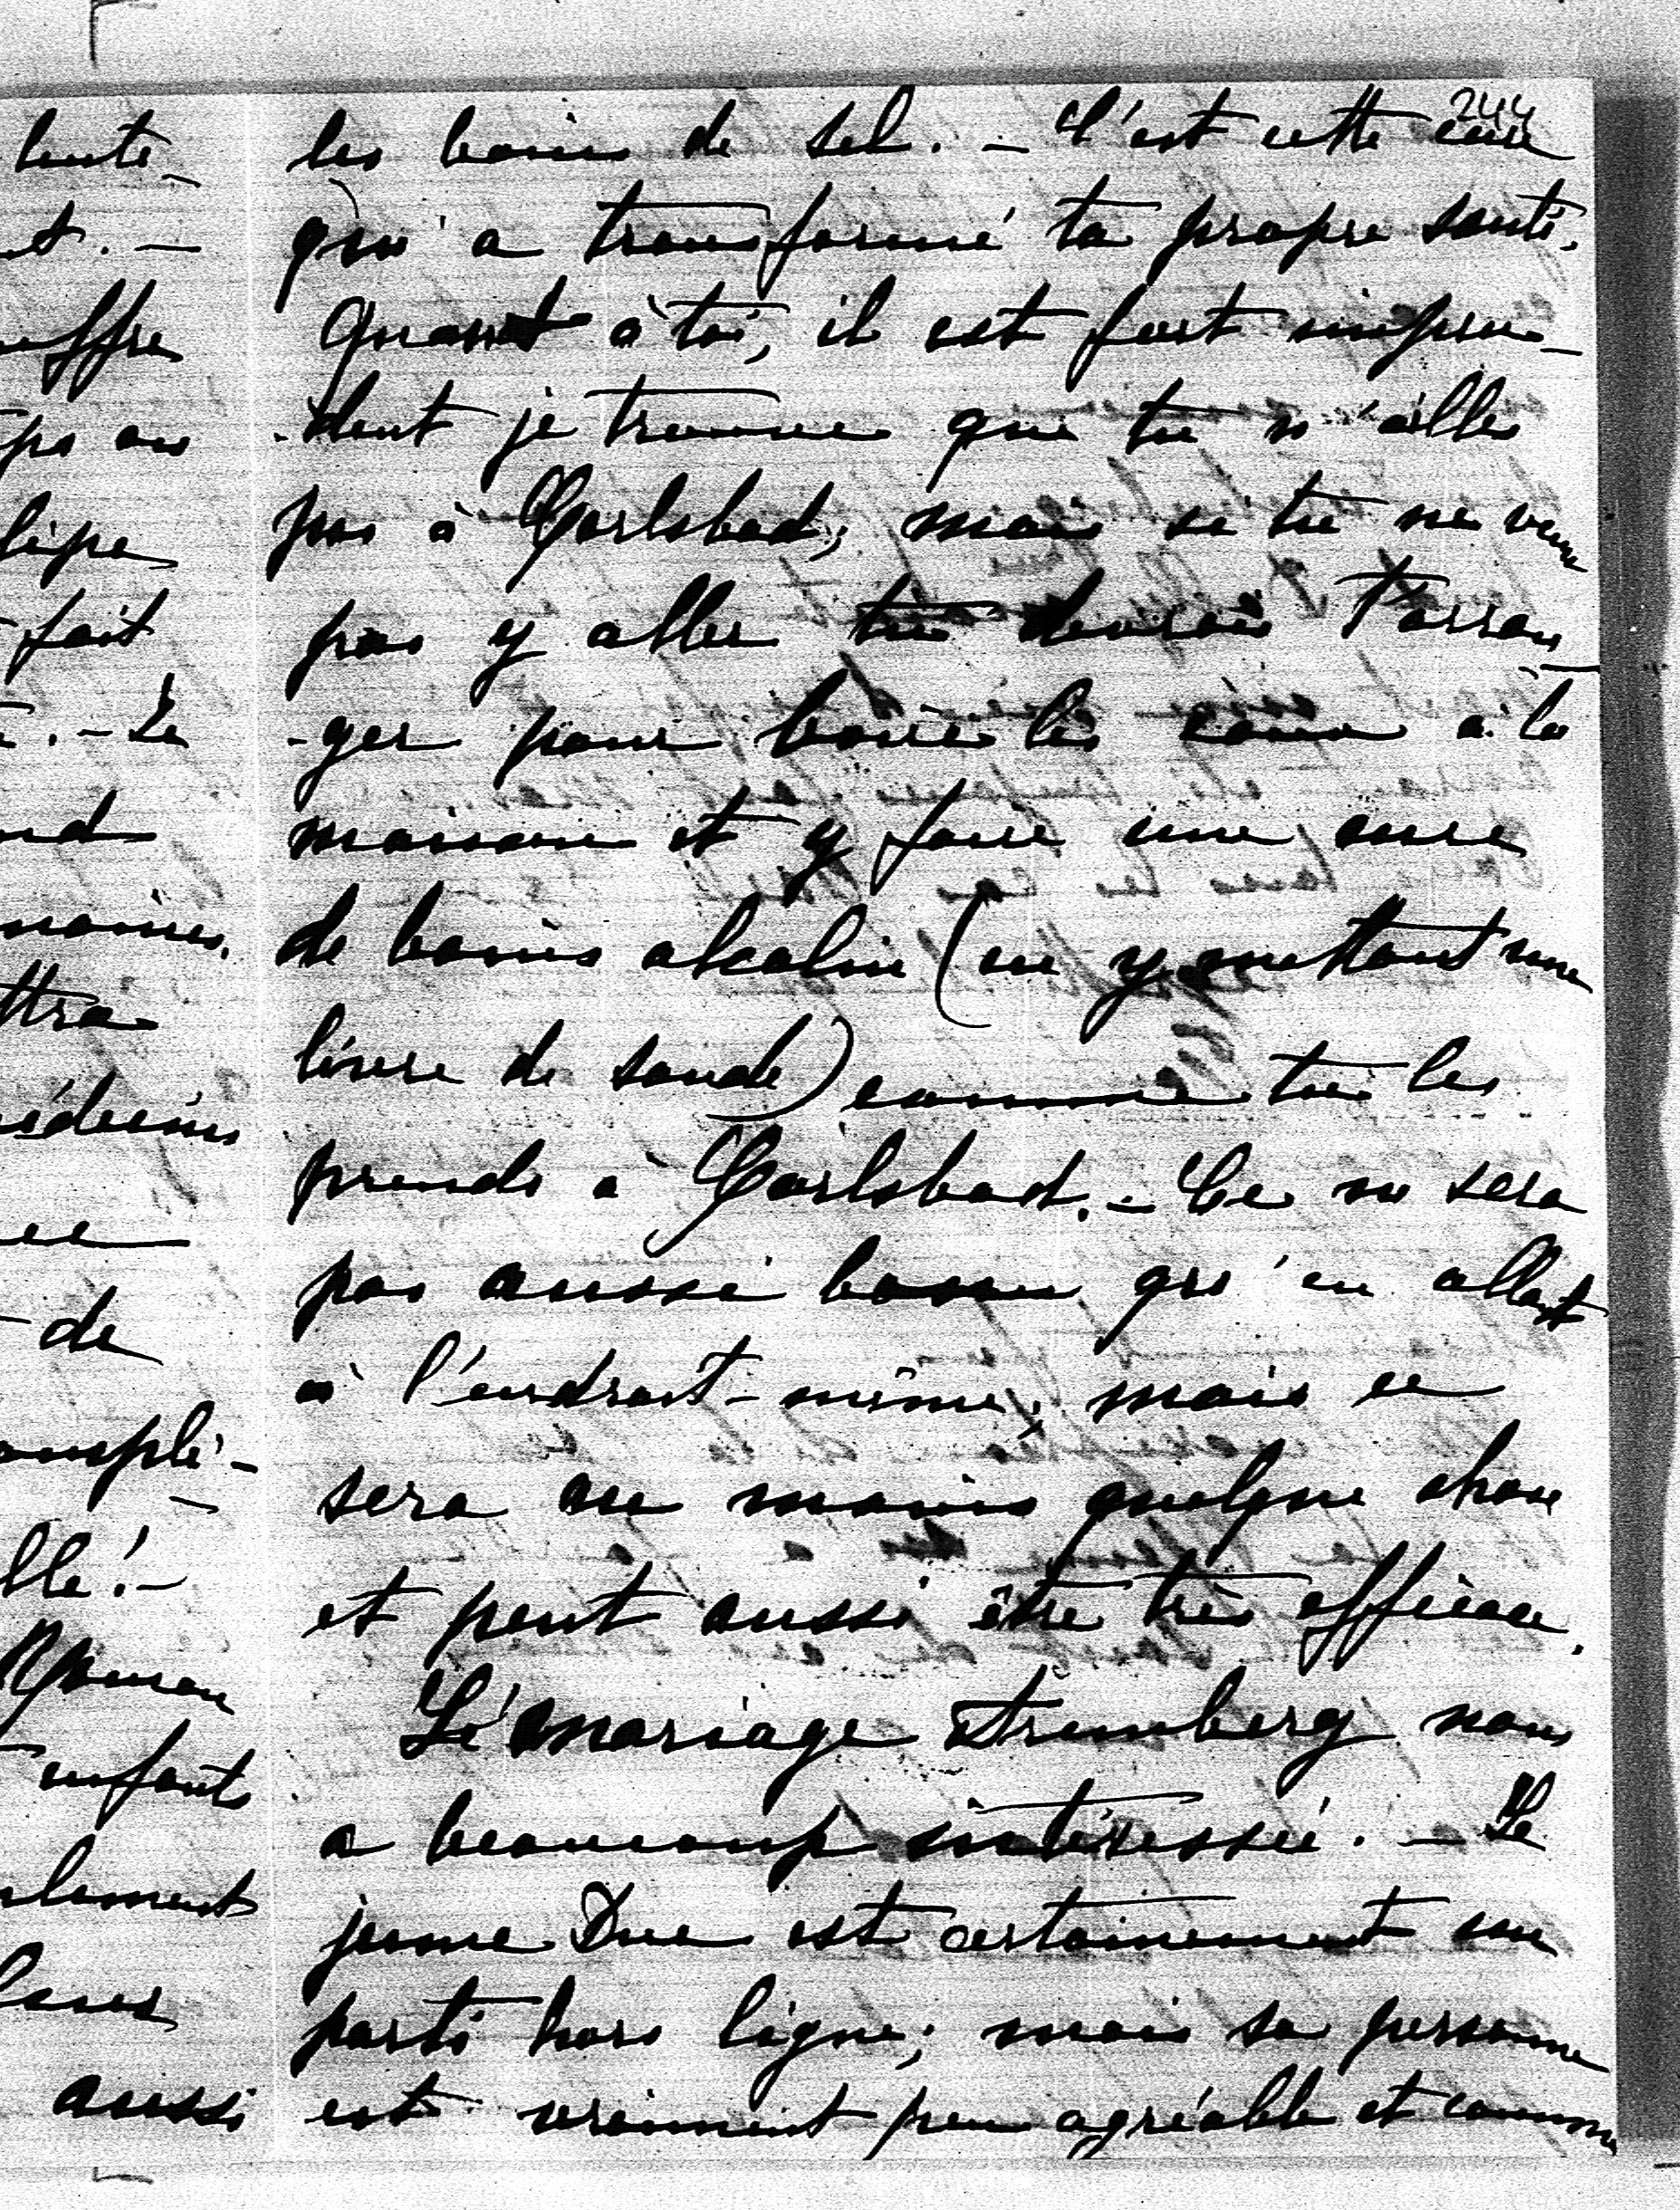 244
les bains de sel. – C'est cette eau
qui a transformé ta propre santé.
Quant à toi, il est fort impru-
-dent je trouve que tu n'ailles
pas à Carlsbad; mais si tu ne veux
pas y aller tu devrais t'arran-
-ger pour boire les eaux à la
maison et y faire une cure
de bains alcalin (en y mettant une
livre de soude) comme tu les
prends à Carlsbad. – Ce ne sera
pas aussi bon qu'en allant
à l'endroit-même; mais ce
sera au moins quelque chose
et peut aussi être très efficace.
Le mariage Strumberg nous
a beaucoup intéressé. – Le
jeune Duc est certainement un
parti hors ligne; mais sa personne
est vraiment peu agréable et comme
lente-
t. –
uffre
ps au
lipe
fait
. – Le
nd
moires.
ttra
édecins
ee
de
ompli-
llé! –
enfants
lement
aussi